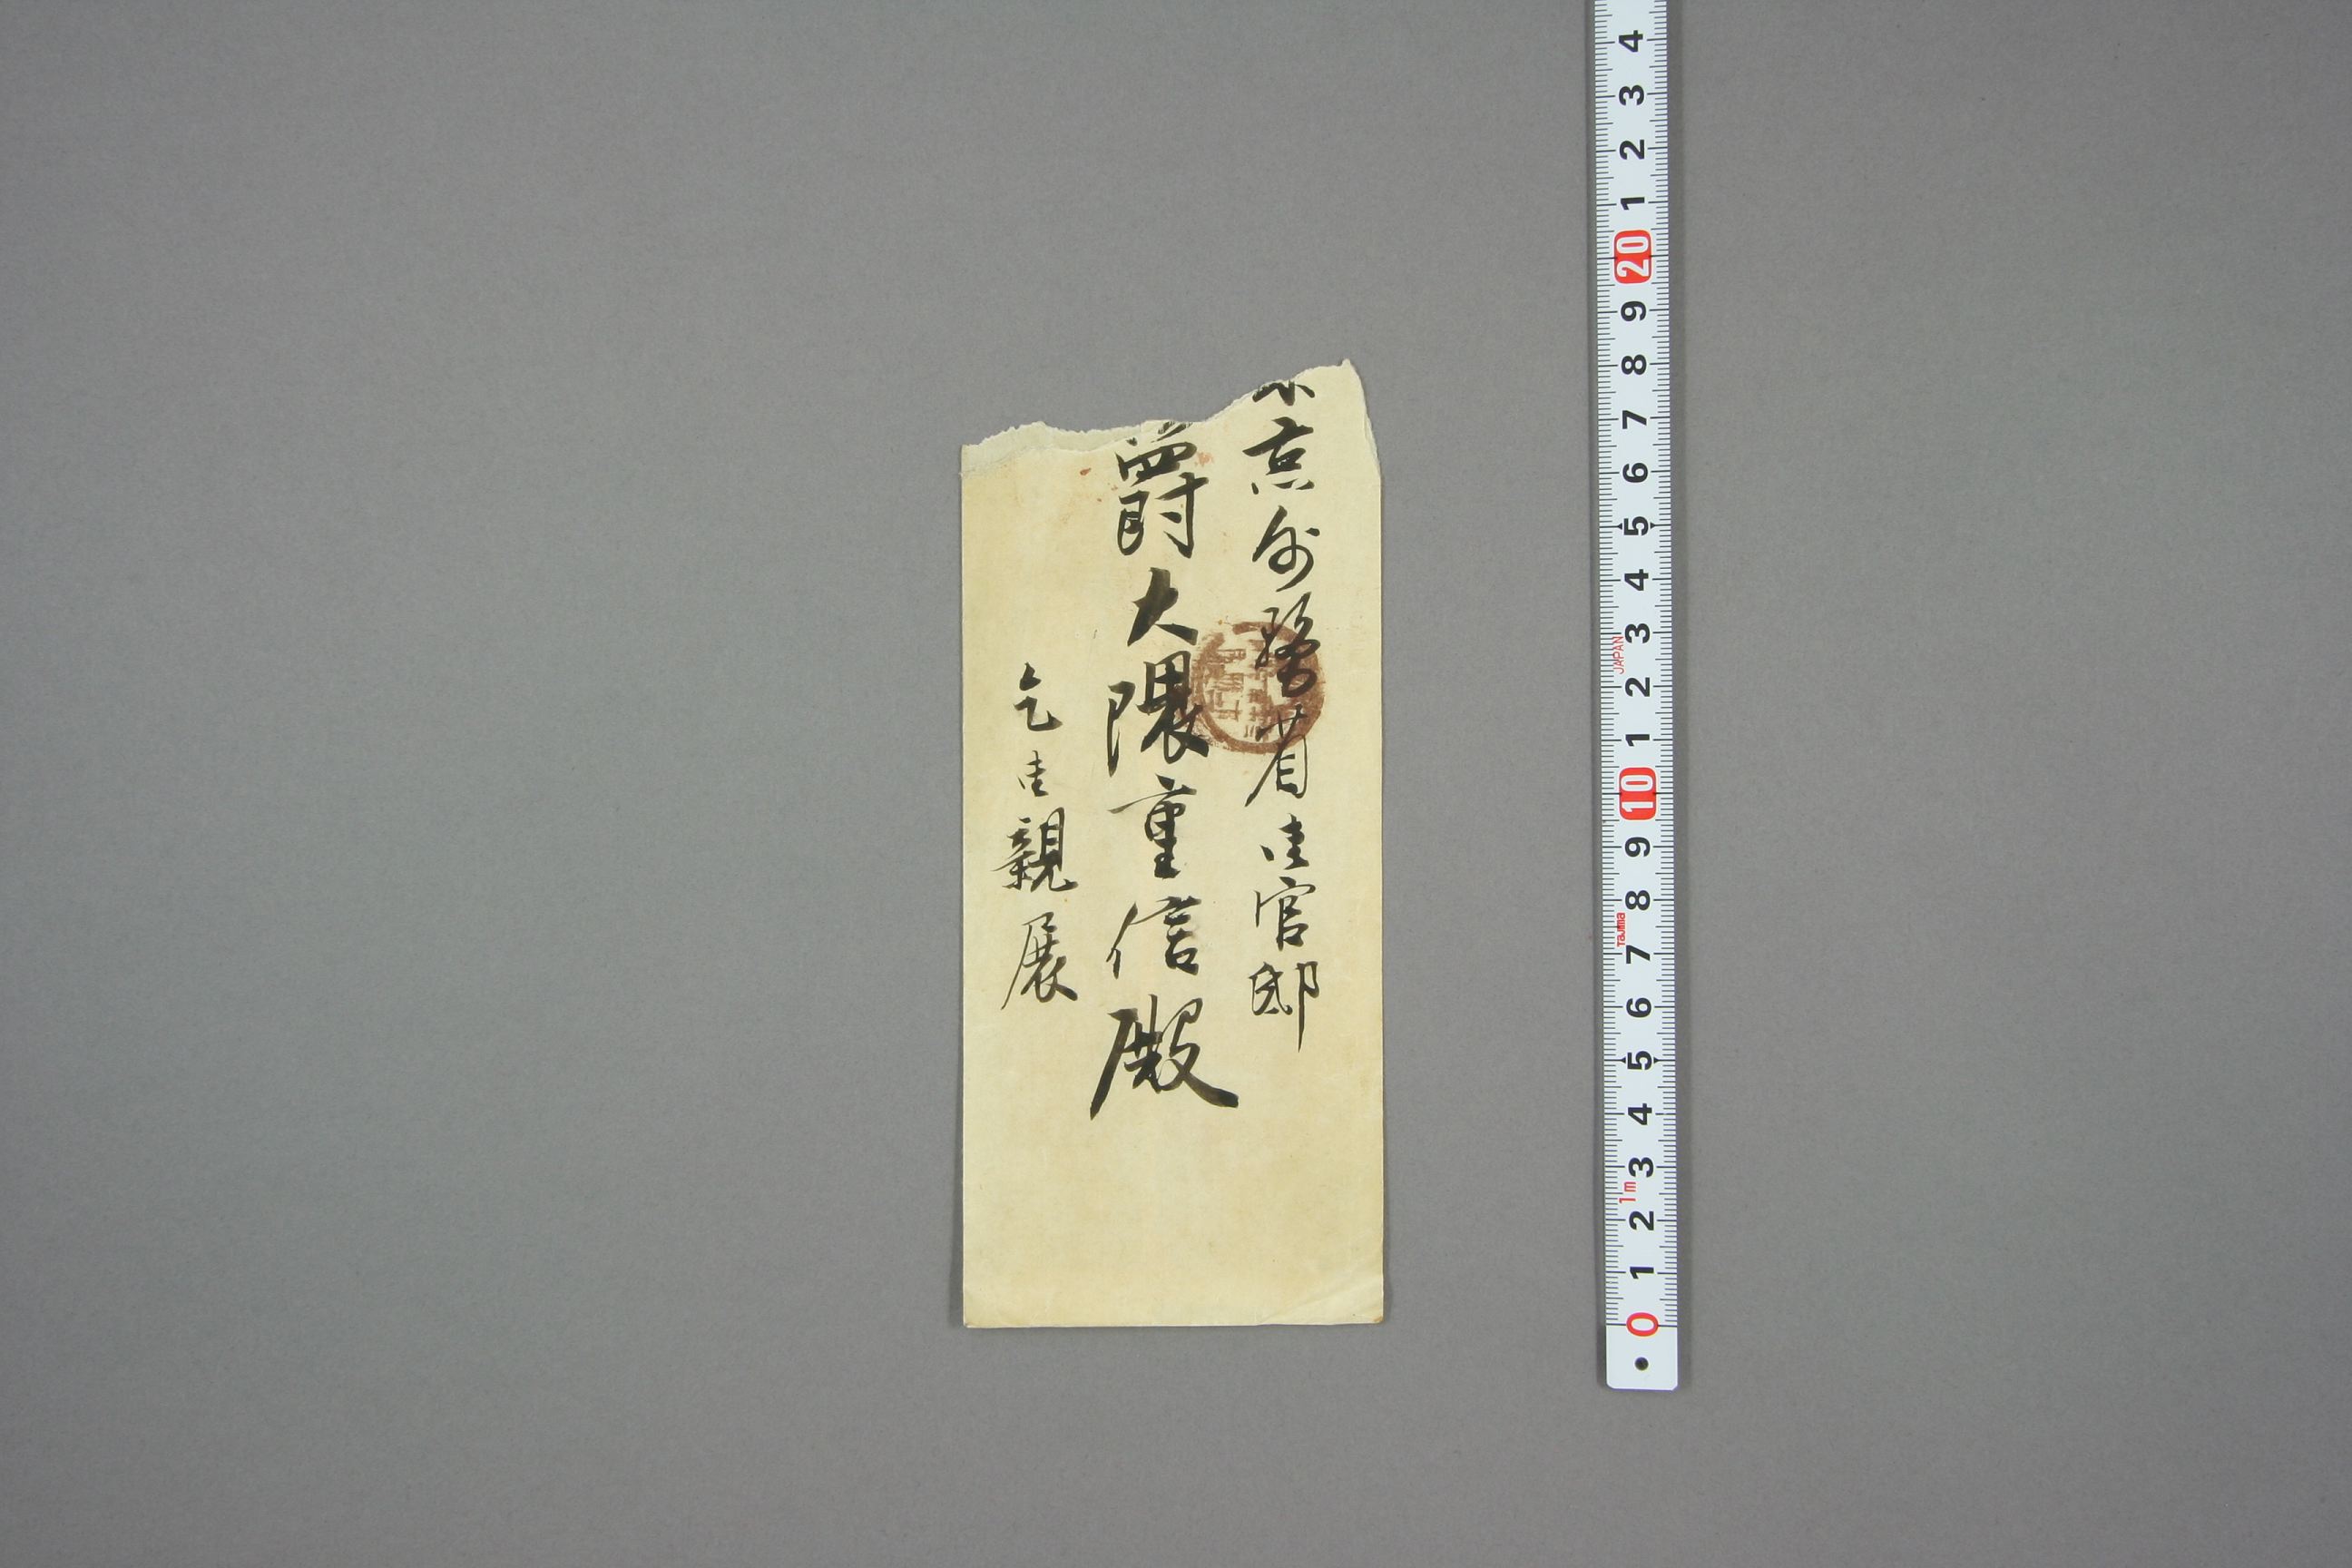 東京外務省御官邸
爵大隈重信殿
乞御親展
4
3
2
1
20
9
8
7
6
5
4
3
2
1
10
9
8
7
6
5
4
3
2
1
0
JAPAN
Tajima
1m